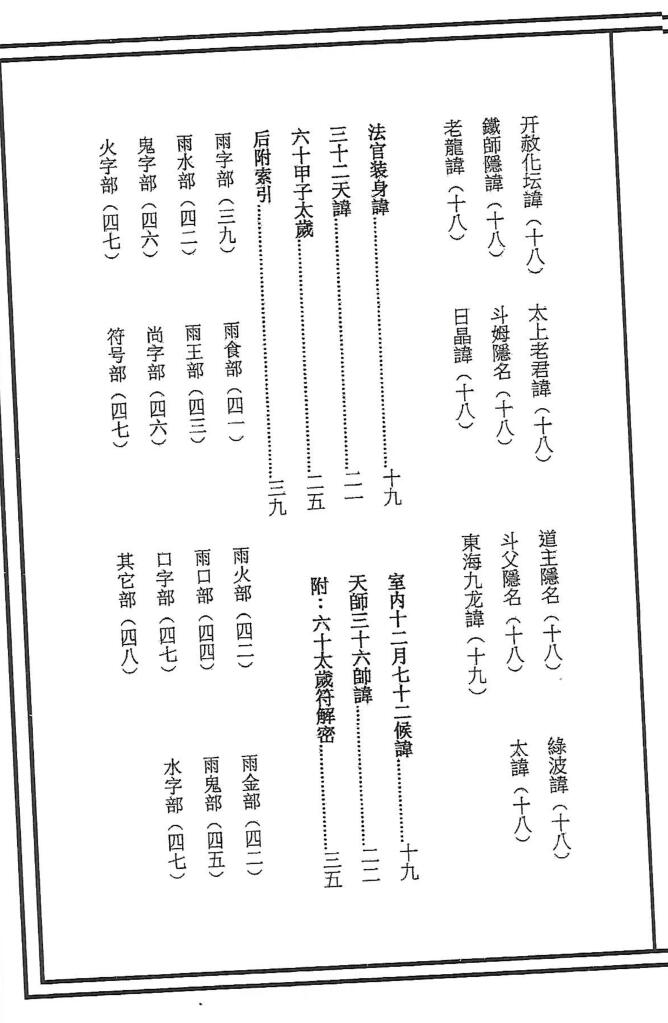 开赦化坛諱（十八） 太上老君諱（十八） 道主隱名（十八） 綠波諱（十八）
鐵師隱諱（十八） 斗姆隱名（十八） 斗父隱名（十八） 太諱（十八）
老龍諱（十八） 日晶諱（十八） 東海九龙諱（十九）
法官装身諱……十九 室内十二月七十二候諱……十九
三十二天諱……二一 天師三十六帥諱……二二
六十甲子太歲……二五 附：六十太歲符解密……三五
后附索引……三九
雨字部（三九） 雨食部（四一） 雨火部（四二） 雨金部（四二）
雨水部（四二） 雨王部（四三） 雨口部（四四） 雨鬼部（四五）
鬼字部（四六） 尚字部（四六） 口字部（四七） 水字部（四七）
火字部（四七） 符号部（四七） 其它部（四八）